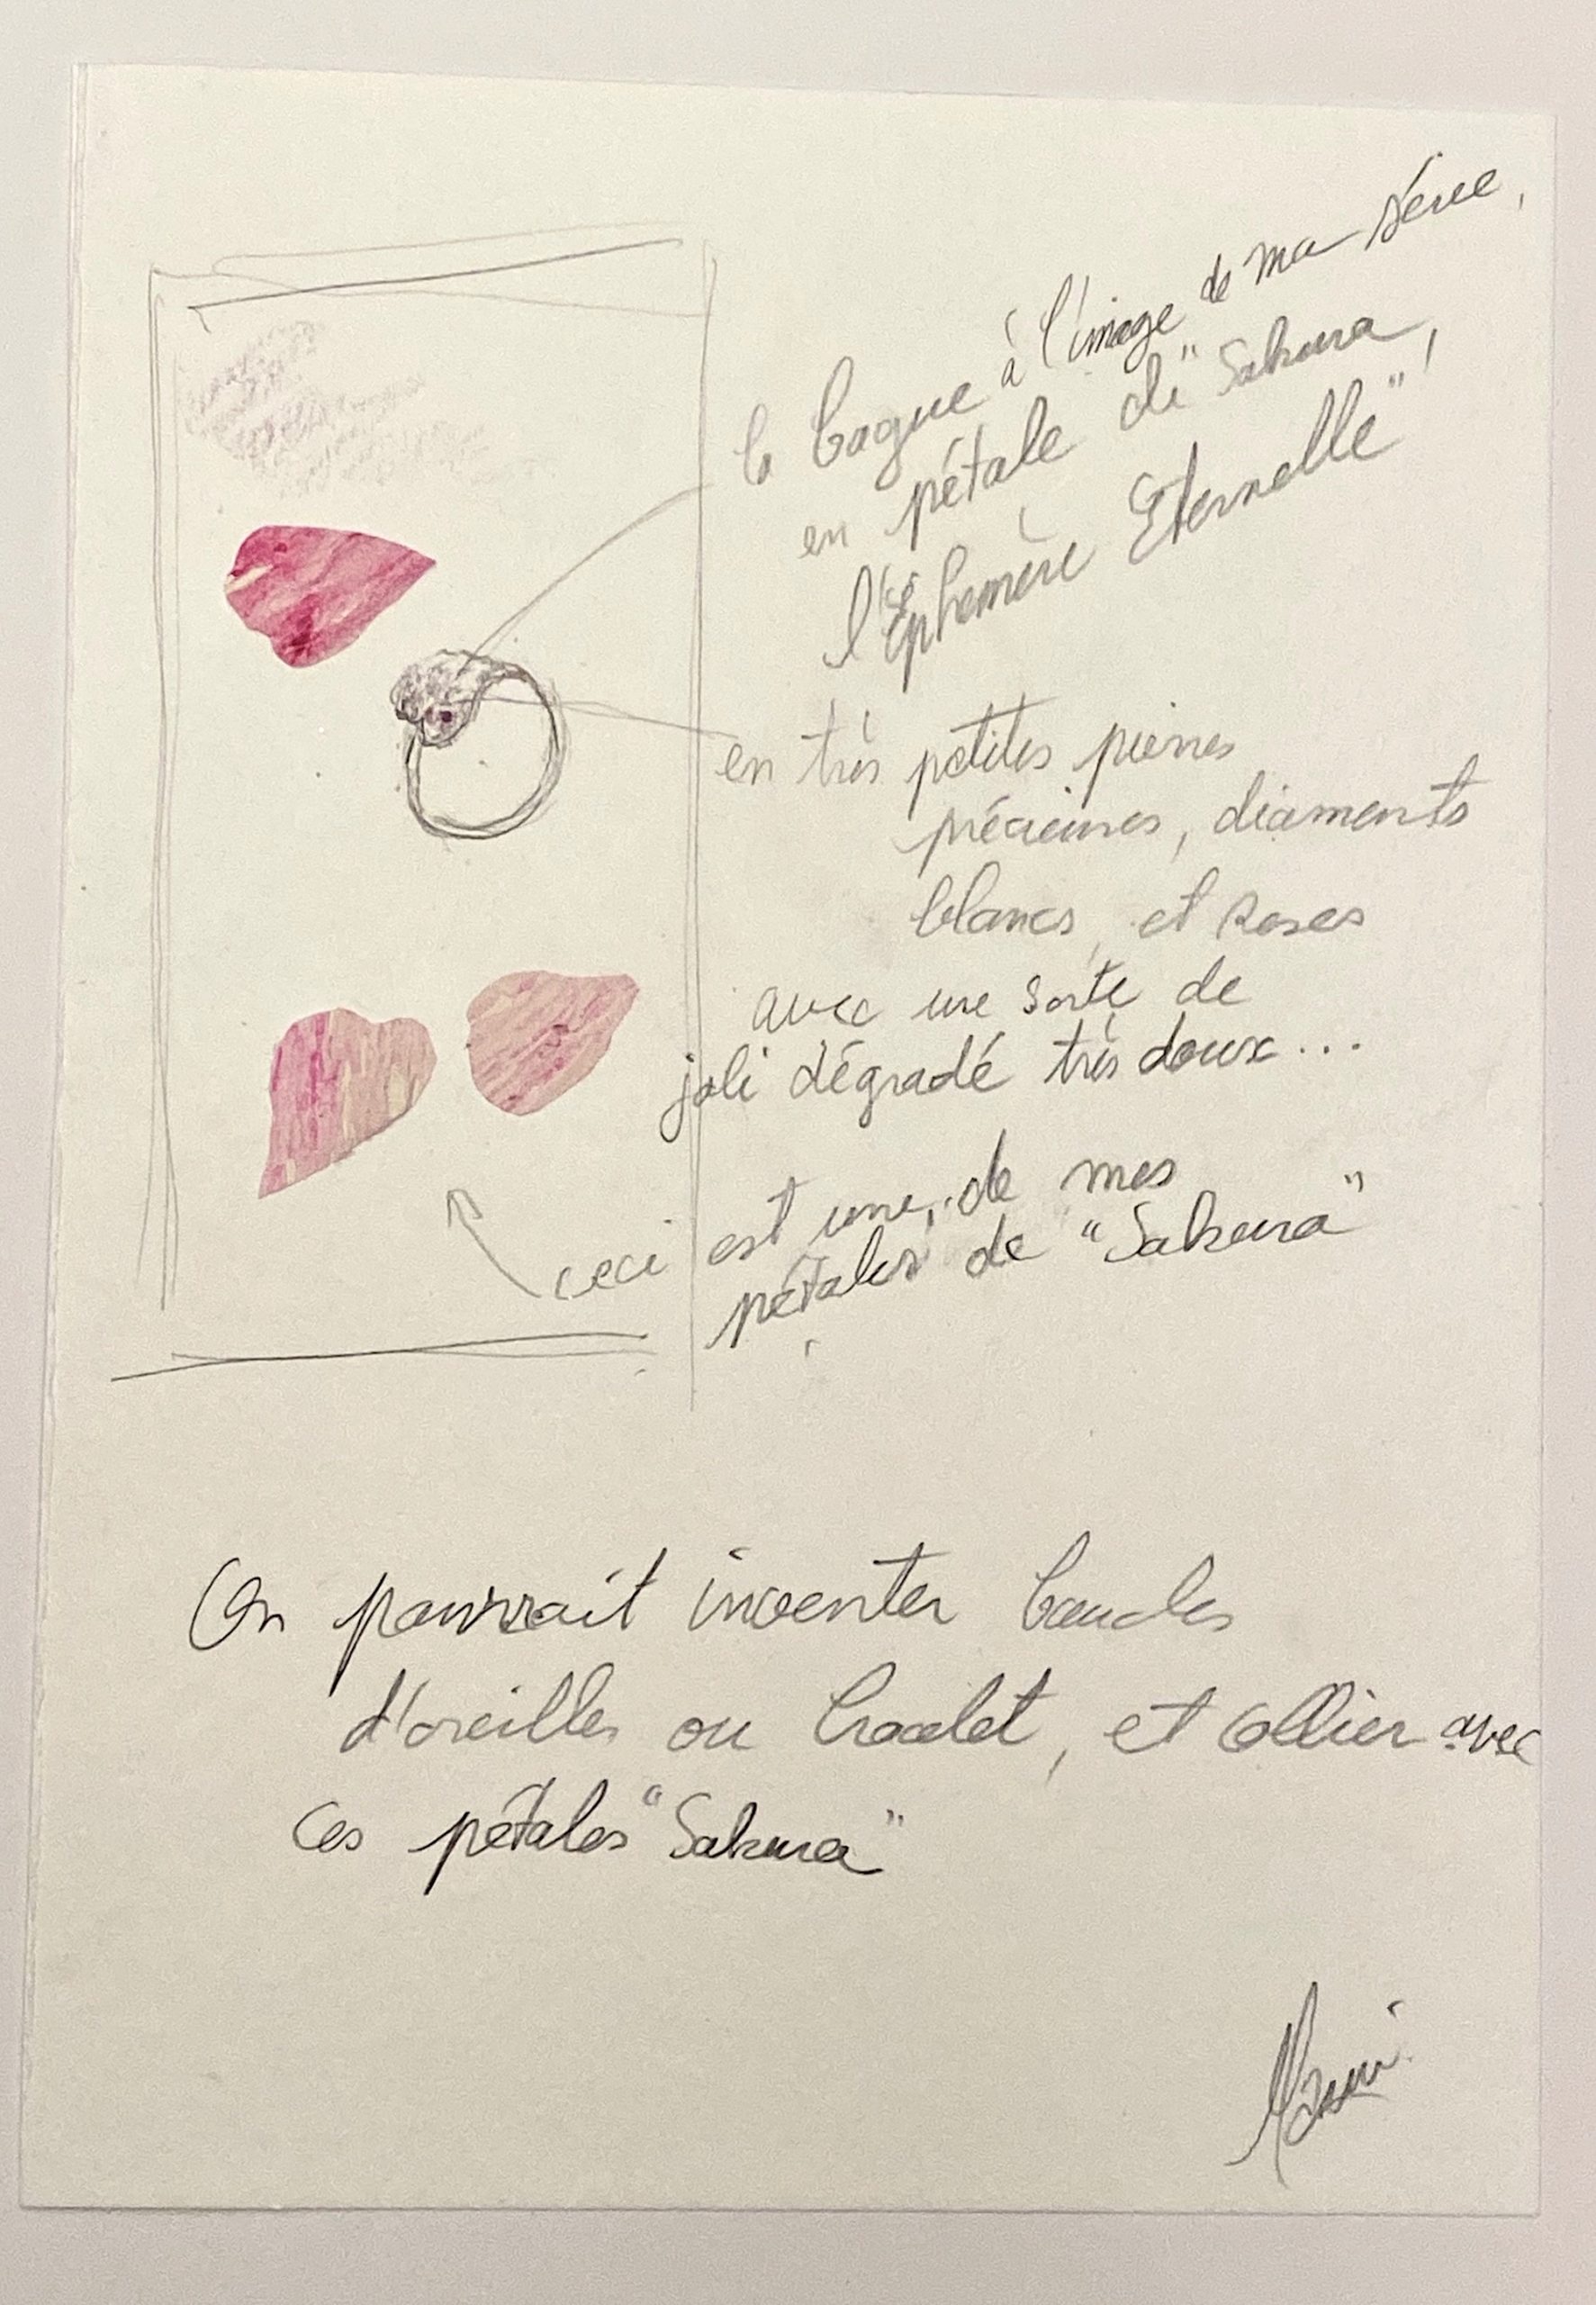 la bague à l'image de ma série,
en pétale de "Sakura,
l'Ephemère Eternelle"
en très petites pierres
précieuses, diaments
blancs, et roses
avec une sorte de
joli dégradé très doux...
ceci est une de mes
pétales de "Sakura"
On pourrait inventer boucles
d'oreilles ou bracelet, et collier avec
ces pétales "Sakura"